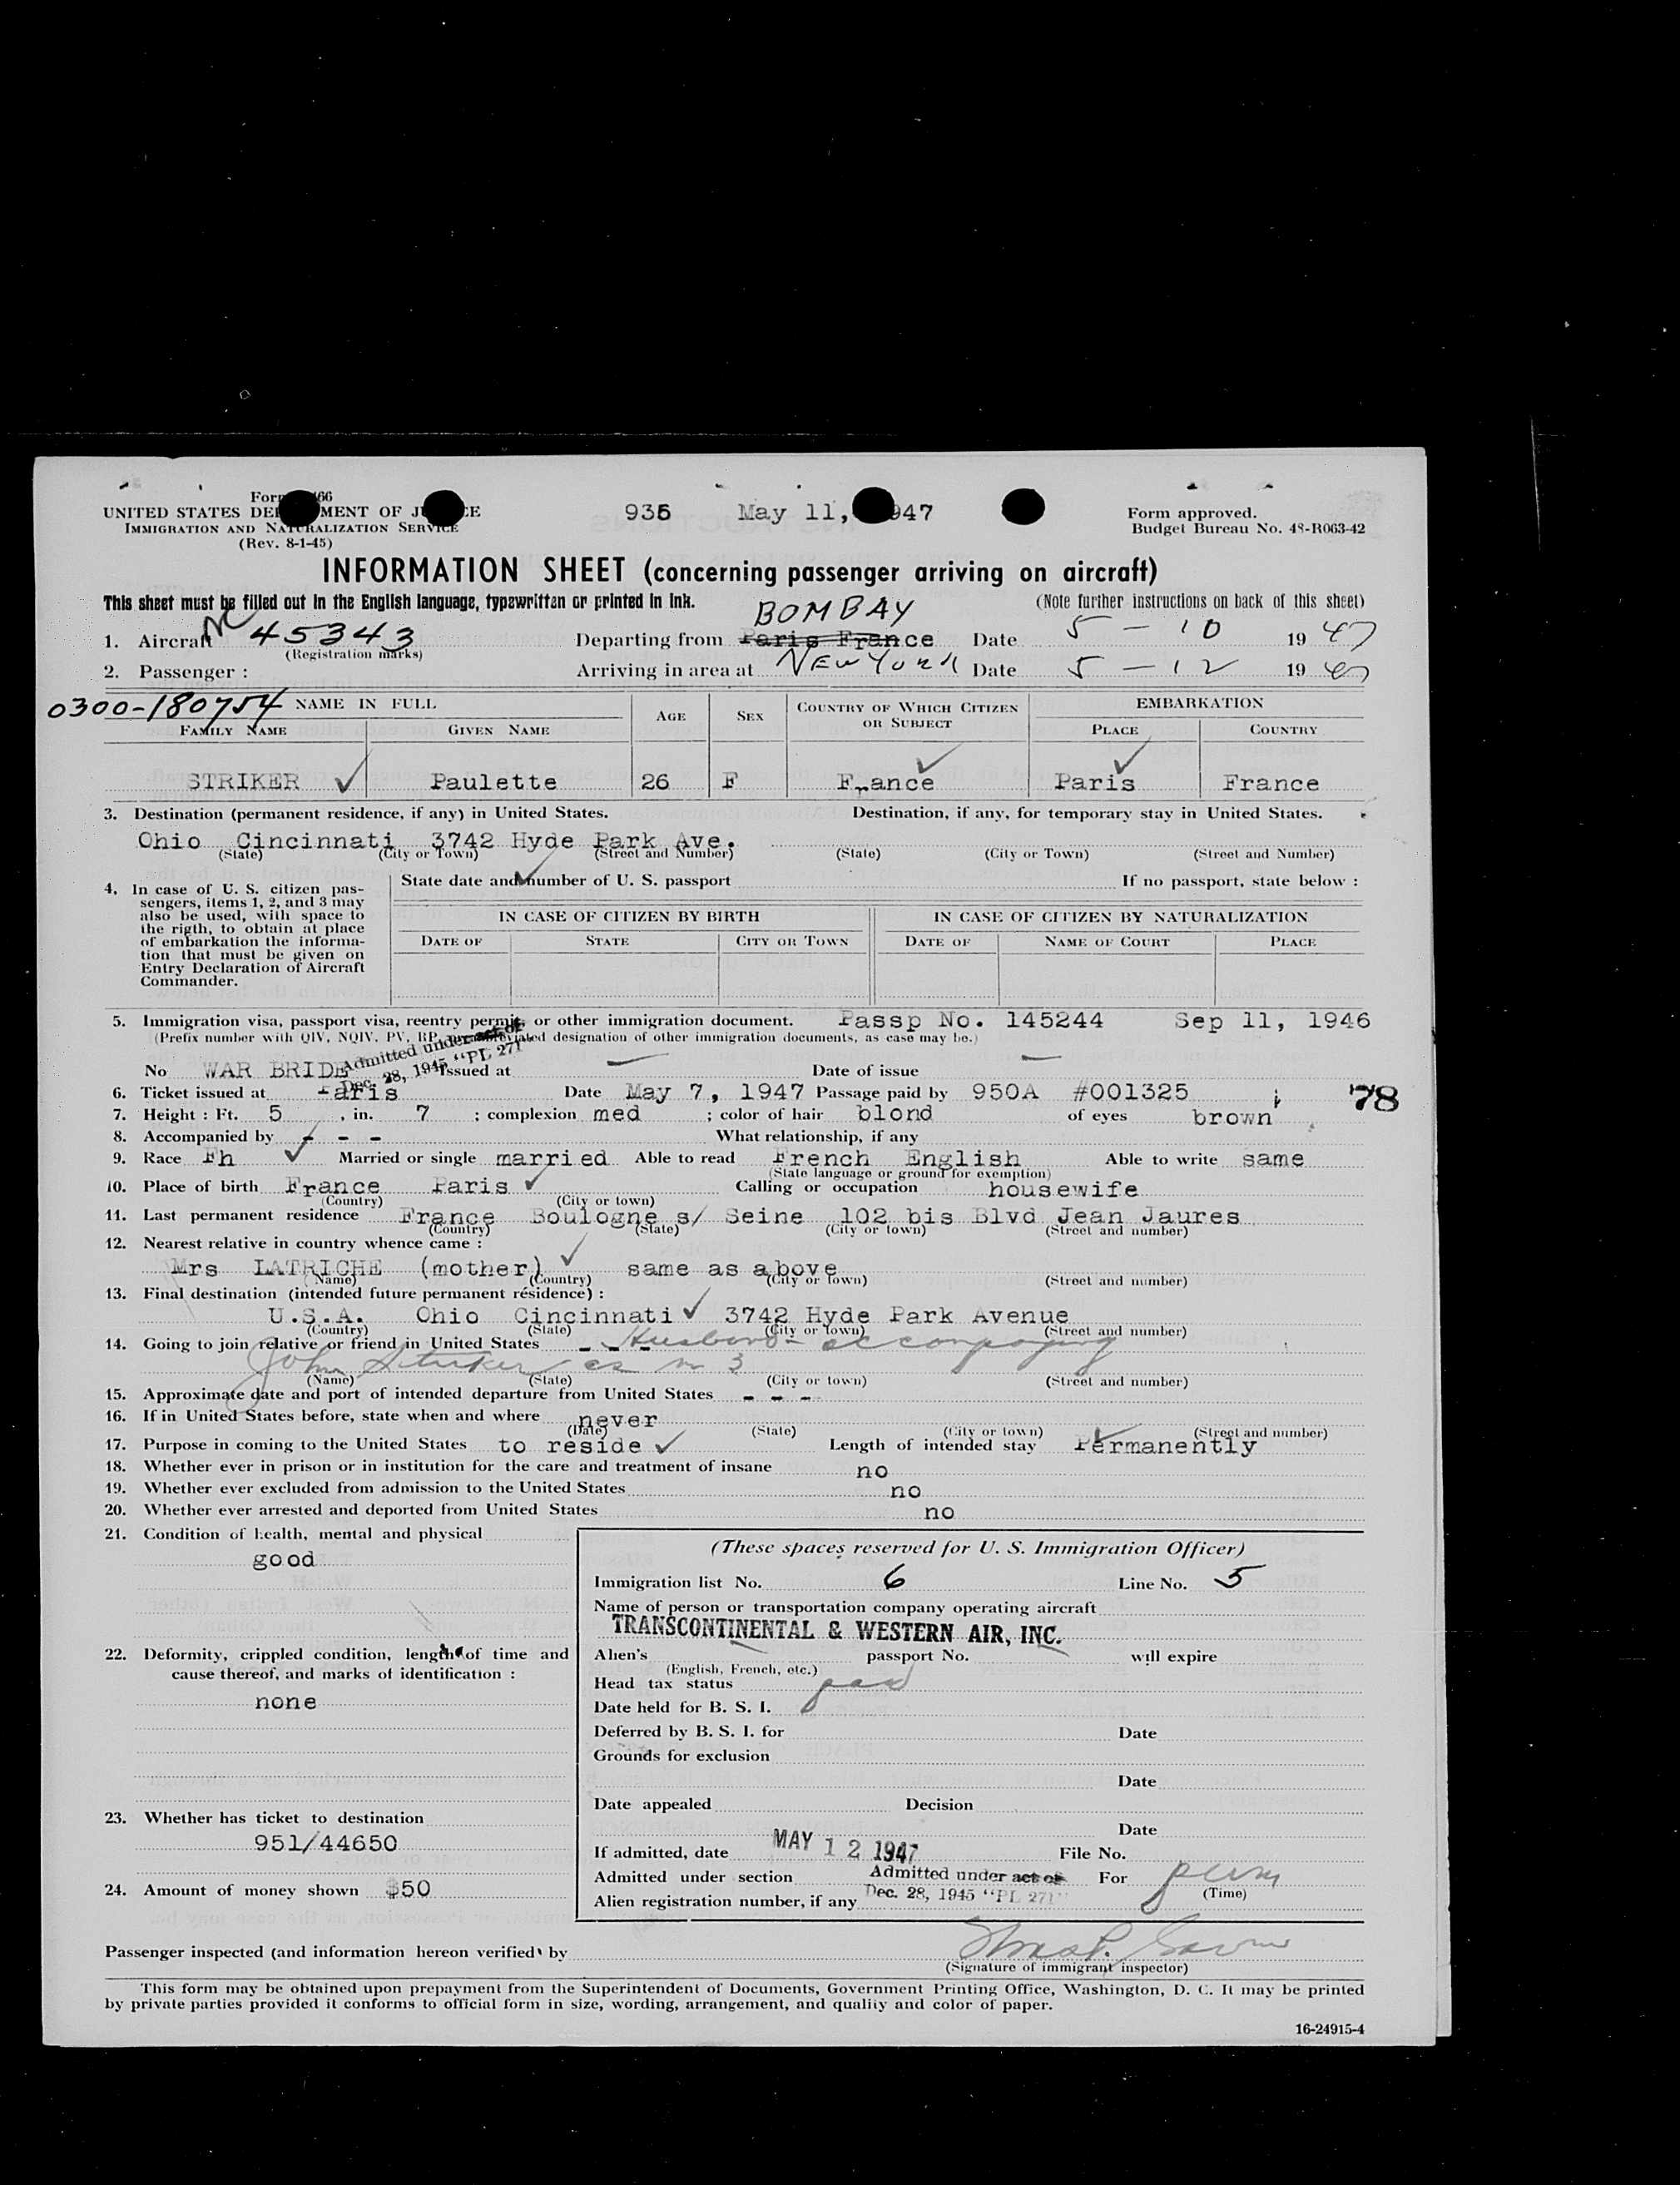 Form 66
UNITED STATES DEPARTMENT OF JUSTICE
IMMIGRATION AND NATURALIZATION SERVICE
(Rev. 8-1-45)
935 May 11, 1947
Form approved.
Budget Bureau No. 43-R063-42
INFORMATION SHEET (concerning passenger arriving on aircraft)
This sheet must be filled out in the English language, typewritten or printed in ink.
(Note further instructions on back of this sheet)
BOMBAY
1. Aircraft NC 45343 Departing from Paris France Date 5 - 10 19 47
(Registration marks)
2. Passenger : Arriving in area at NEW YORK Date 5 - 12 19 47
0300-180754 NAME IN FULL AGE SEX COUNTRY OF WHICH CITIZEN OR SUBJECT EMBARKATION
FAMILY NAME GIVEN NAME PLACE COUNTRY
STRIKER Paulette 26 F France Paris France
3. Destination (permanent residence, if any) in United States. Destination, if any, for temporary stay in United States.
Ohio Cincinnati 3742 Hyde Park Ave.
(State) (City or Town) (Street and Number) (State) (City or Town) (Street and Number)
4. In case of U. S. citizen pas-
sengers, items 1, 2, and 3 may
also be used, with space to
the rigth, to obtain at place
of embarkation the informa-
tion that must be given on
Entry Declaration of Aircraft
Commander.
State date and number of U. S. passport If no passport, state below :
IN CASE OF CITIZEN BY BIRTH IN CASE OF CITIZEN BY NATURALIZATION
DATE OF STATE CITY OR TOWN DATE OF NAME OF COURT PLACE
5. Immigration visa, passport visa, reentry permit, or other immigration document. Passp No. 145244 Sep 11, 1946
(Prefix number with QIV, NQIV, PV, RP, or abbreviated designation of other immigration documents, as case may be.)
Admitted under act of
Dec. 28, 1945 "PL 271"
No WAR BRIDE Issued at Date of issue
6. Ticket issued at Paris Date May 7, 1947 Passage paid by 950A #001325
78
7. Height : Ft. 5 , in. 7 ; complexion med ; color of hair blond of eyes brown
8. Accompanied by - - - What relationship, if any
9. Race Fh Married or single married Able to read French English Able to write same
(State language or ground for exemption)
10. Place of birth France Paris Calling or occupation housewife
(Country) (City or town)
11. Last permanent residence France Boulogne s/ Seine 102 bis Blvd Jean Jaures
(Country) (State) (City or town) (Street and number)
12. Nearest relative in country whence came :
Mrs LATRICHE (mother) same as above
(Name) (Country) (City or town) (Street and number)
13. Final destination (intended future permanent résidence) :
U.S.A. Ohio Cincinnati 3742 Hyde Park Avenue
(Country) (State) (City or town) (Street and number)
14. Going to join relative or friend in United States - - - Husband - accompanying
John Striker as in 3
(Name) (State) (City or town) (Street and number)
15. Approximate date and port of intended departure from United States - - -
16. If in United States before, state when and where never
(Date) (State) (City or town) (Street and number)
17. Purpose in coming to the United States to reside Length of intended stay Permanently
18. Whether ever in prison or in institution for the care and treatment of insane no
19. Whether ever excluded from admission to the United States no
20. Whether ever arrested and deported from United States no
21. Condition of health, mental and physical
good
22. Deformity, crippled condition, length of time and
cause thereof, and marks of identification :
none
23. Whether has ticket to destination
951/44650
24. Amount of money shown $50
(These spaces reserved for U. S. Immigration Officer)
Immigration list No. 6 Line No. 5
Name of person or transportation company operating aircraft
TRANSCONTINENTAL & WESTERN AIR, INC.
Alien's passport No. will expire
(English, French, etc.)
Head tax status
Date held for B. S. I.
Deferred by B. S. I. for Date
Grounds for exclusion
Date
Date appealed Decision
Date
If admitted, date MAY 12 1947 File No.
Admitted under section Admitted under act of For perm
(Time)
Alien registration number, if any Dec. 28, 1945 "PL 271"
Passenger inspected (and information hereon verified) by
(Signature of immigrant inspector)
This form may be obtained upon prepayment from the Superintendent of Documents, Government Printing Office, Washington, D. C. It may be printed
by private parties provided it conforms to official form in size, wording, arrangement, and quality and color of paper.
16-24915-4